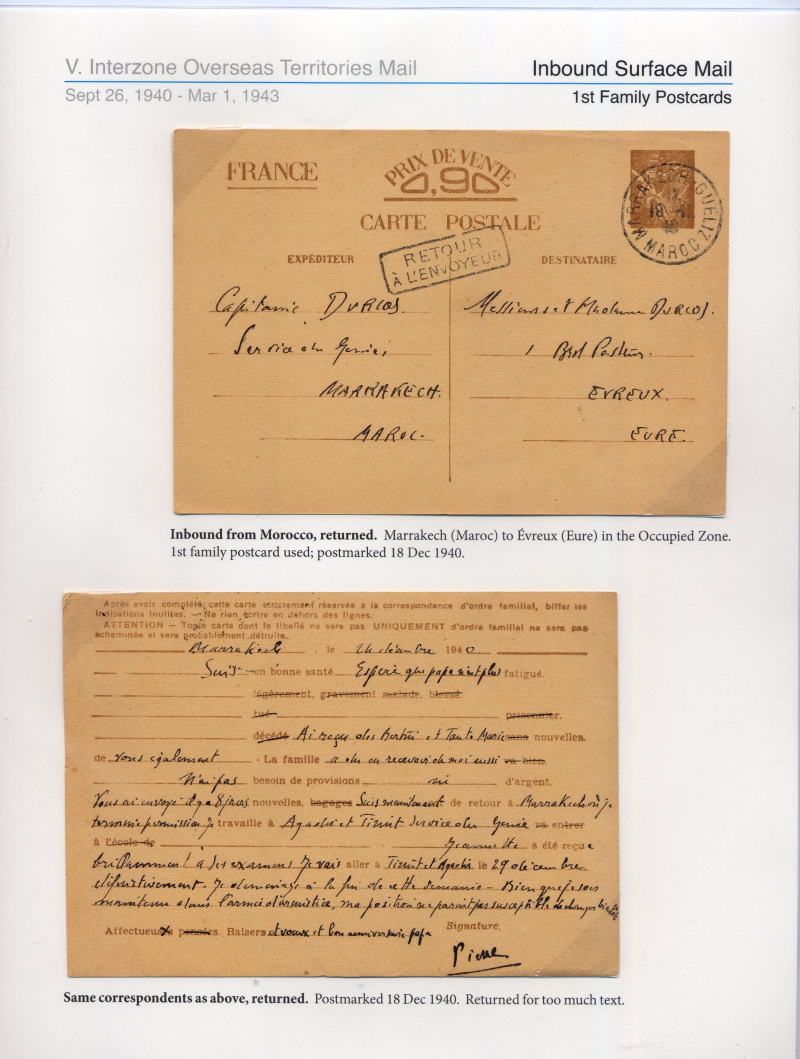 V. Interzone Overseas Territories Mail
Inbound Surface Mail
Sept 26, 1940 - Mar 1, 1943
1st Family Postcards
FRANCE
PRIX DE VENTE
0,90
CARTE POSTALE
MARRAKECH-GUELIZ
MAROC
RETOUR
À L'ENVOYEUR
EXPÉDITEUR
DESTINATAIRE
Capitaine DURCOS.
Service du Genie,
MARRAKECH.
MAROC.
Messieurs et Madame DURCOS.
1 Bvd Pasteur.
EVREUX.
EURE.
Inbound from Morocco, returned. Marrakech (Maroc) to Évreux (Eure) in the Occupied Zone.
1st family postcard used; postmarked 18 Dec 1940.
Après avoir complété cette carte strictement réservée à la correspondance d'ordre familial, biffer les
indications inutiles. — Ne rien écrire en dehors des lignes.
ATTENTION — Toute carte dont le libellé ne sera pas UNIQUEMENT d'ordre familial ne sera pas
acheminée et sera probablement détruite.
Marrakech, le décembre 1940
Suis en bonne santé Espère que papa n'est plus fatigué.
légèrement, gravement malade, blessé
tué prisonnier.
décédé Ai reçu des et Tante Marie sans nouvelles.
de vous également - La famille a du en recevoir de moi aussi va bien.
N'ai pas besoin de provisions ni d'argent.
Vous ai envoyé il y a 8 jours nouvelles, bagages Suis maintenant de retour à Marrakech où je
termine permission Je travaille à Agadir et Tiznit Service du Genie va entrer
à l'école de Jeannette a été reçue
brillamment à ses examens Je vais aller à Tiznit et Agadir le 29 décembre
définitivement. Je déménage à la fin de cette semaine - Bien que je sois
maintenu dans l'armée d'armistice, ma position ne parait pas susceptible de changer bientôt
Affectueuses pensées. Baisers et voeux et bon anniversaire papa
Signature.
Pierre
Same correspondents as above, returned. Postmarked 18 Dec 1940. Returned for too much text.